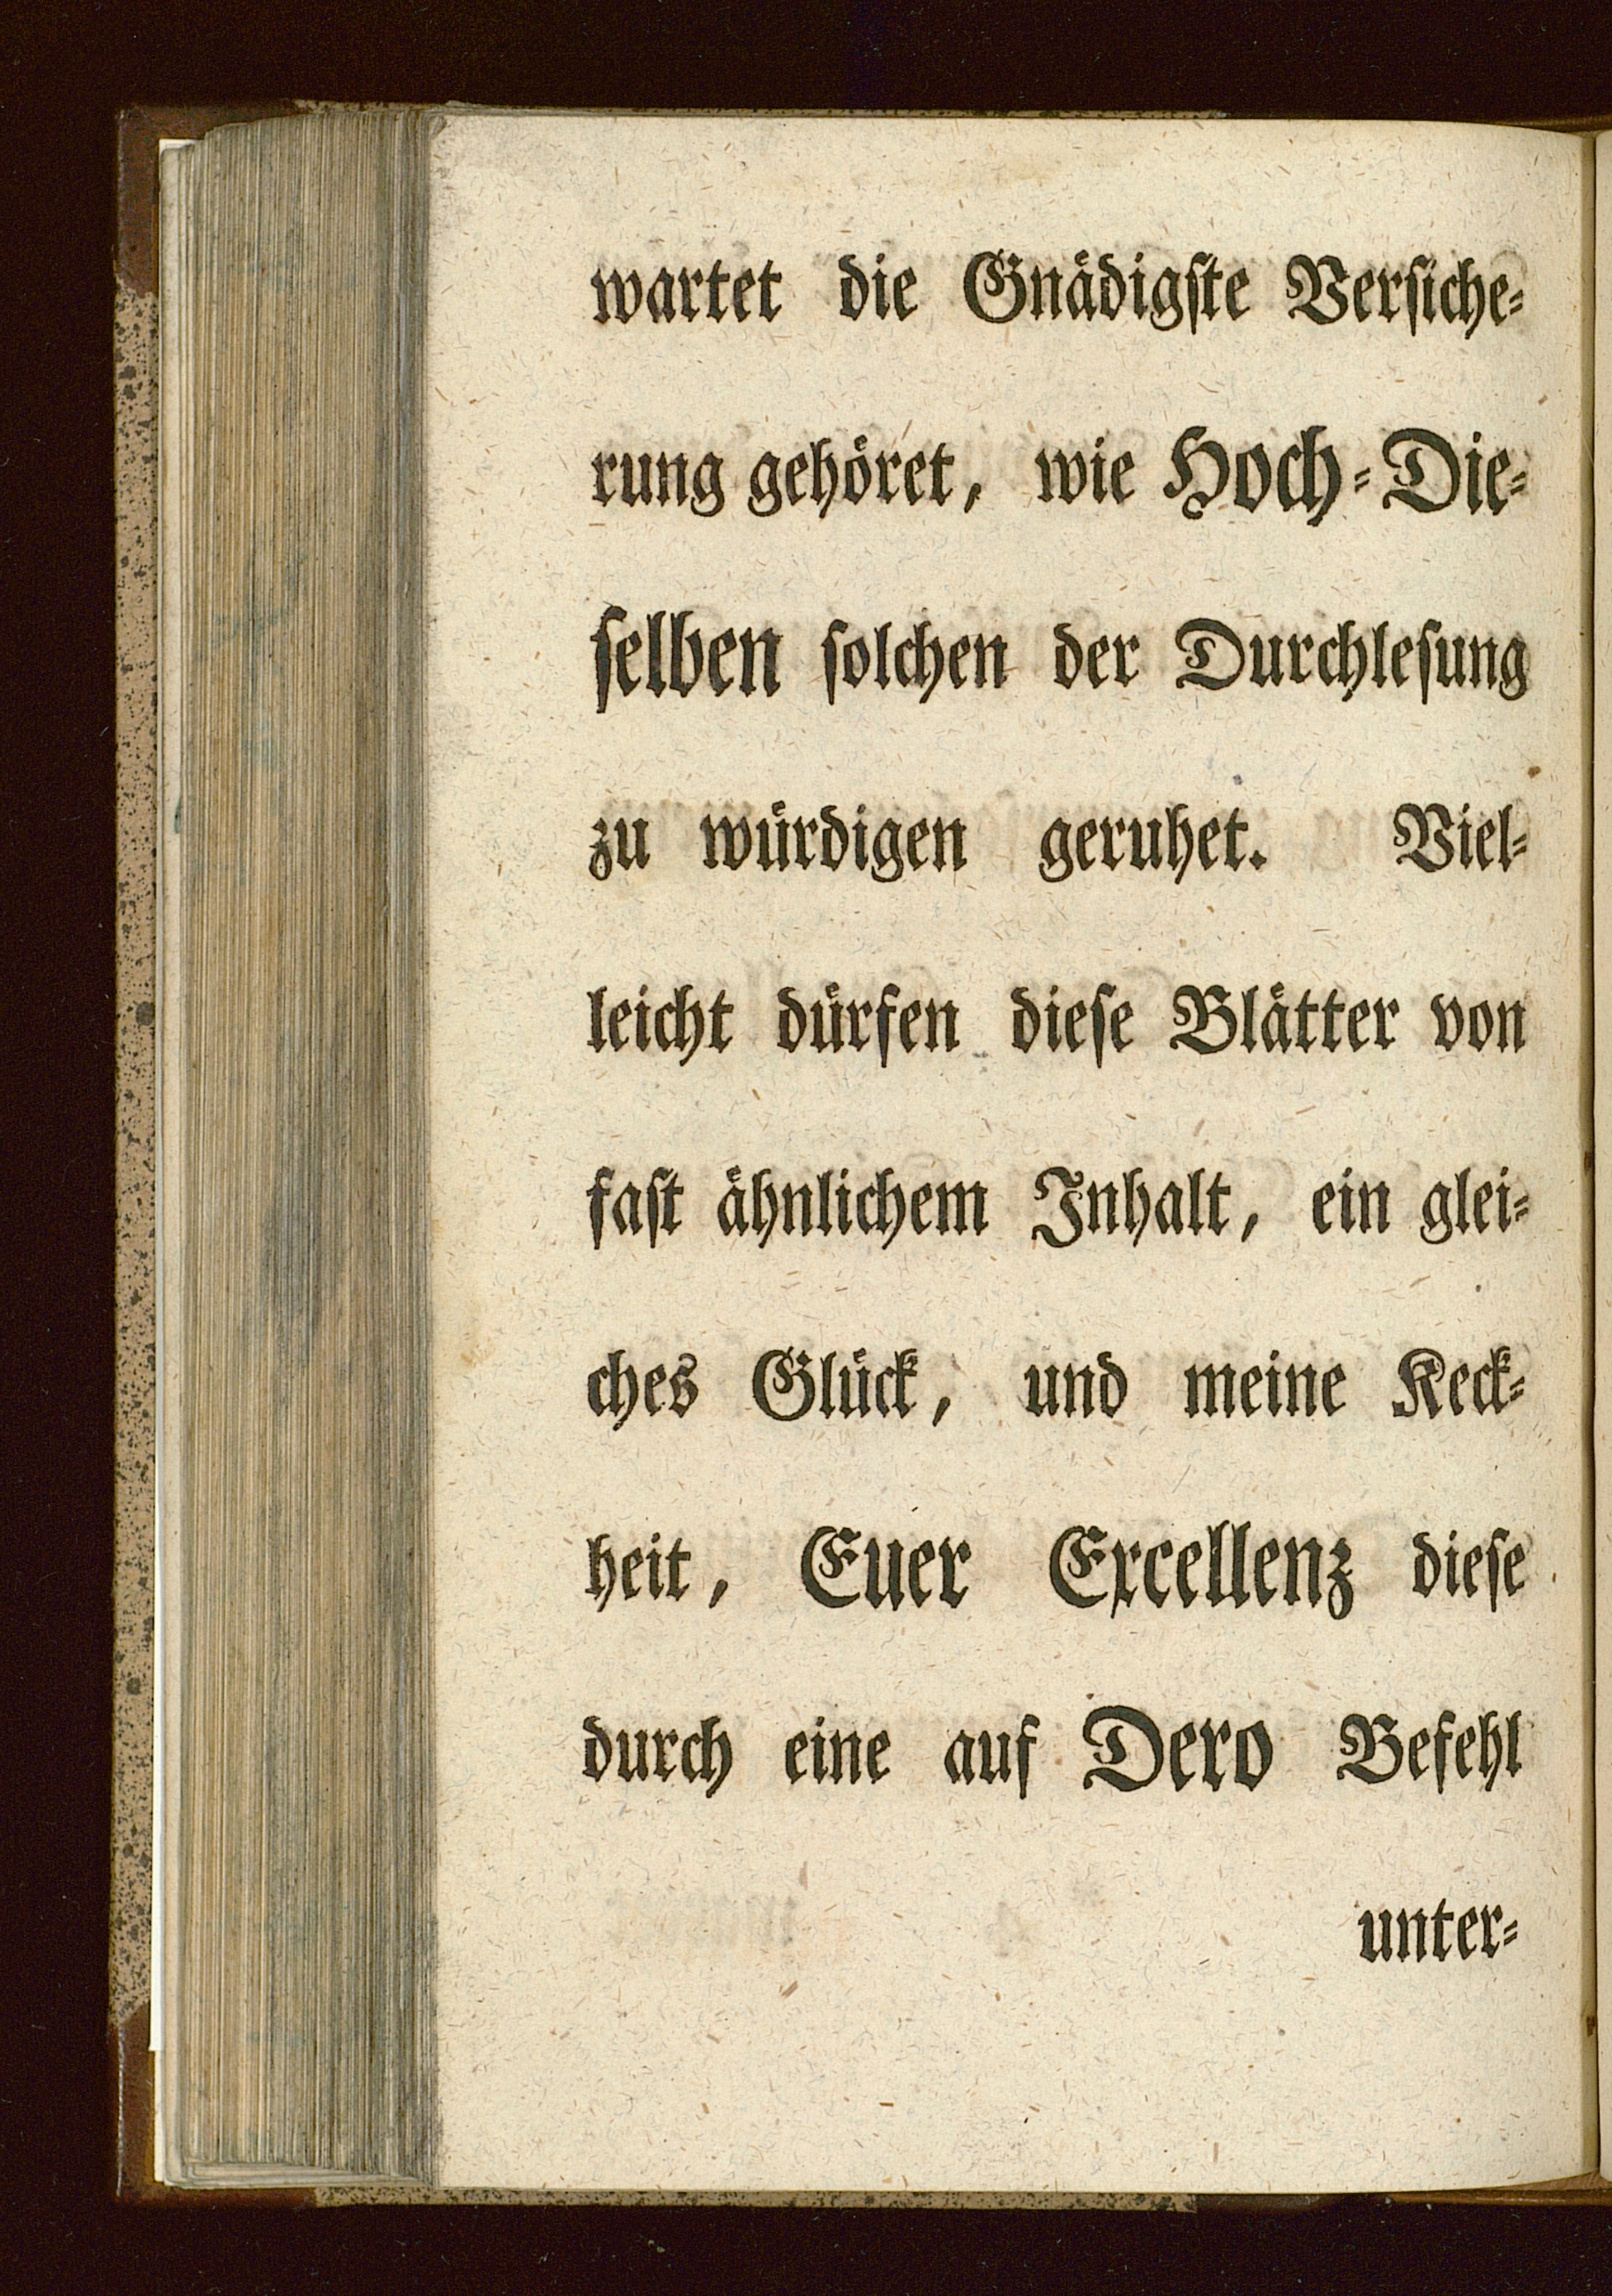 wartet die Gnädigſte Verſiche⸗
rung gehöret, wie Hoch⸗Die⸗
ſelben ſolchen der Durchleſung
zu würdigen geruhet. Viel⸗
leicht dürfen dieſe Blätter von
faſt ähnlichem Inhalt, ein glei⸗
ches Glück, und meine Keck⸗
heit, Euer Excellenz dieſe
durch eine auf Dero Befehl
unter⸗